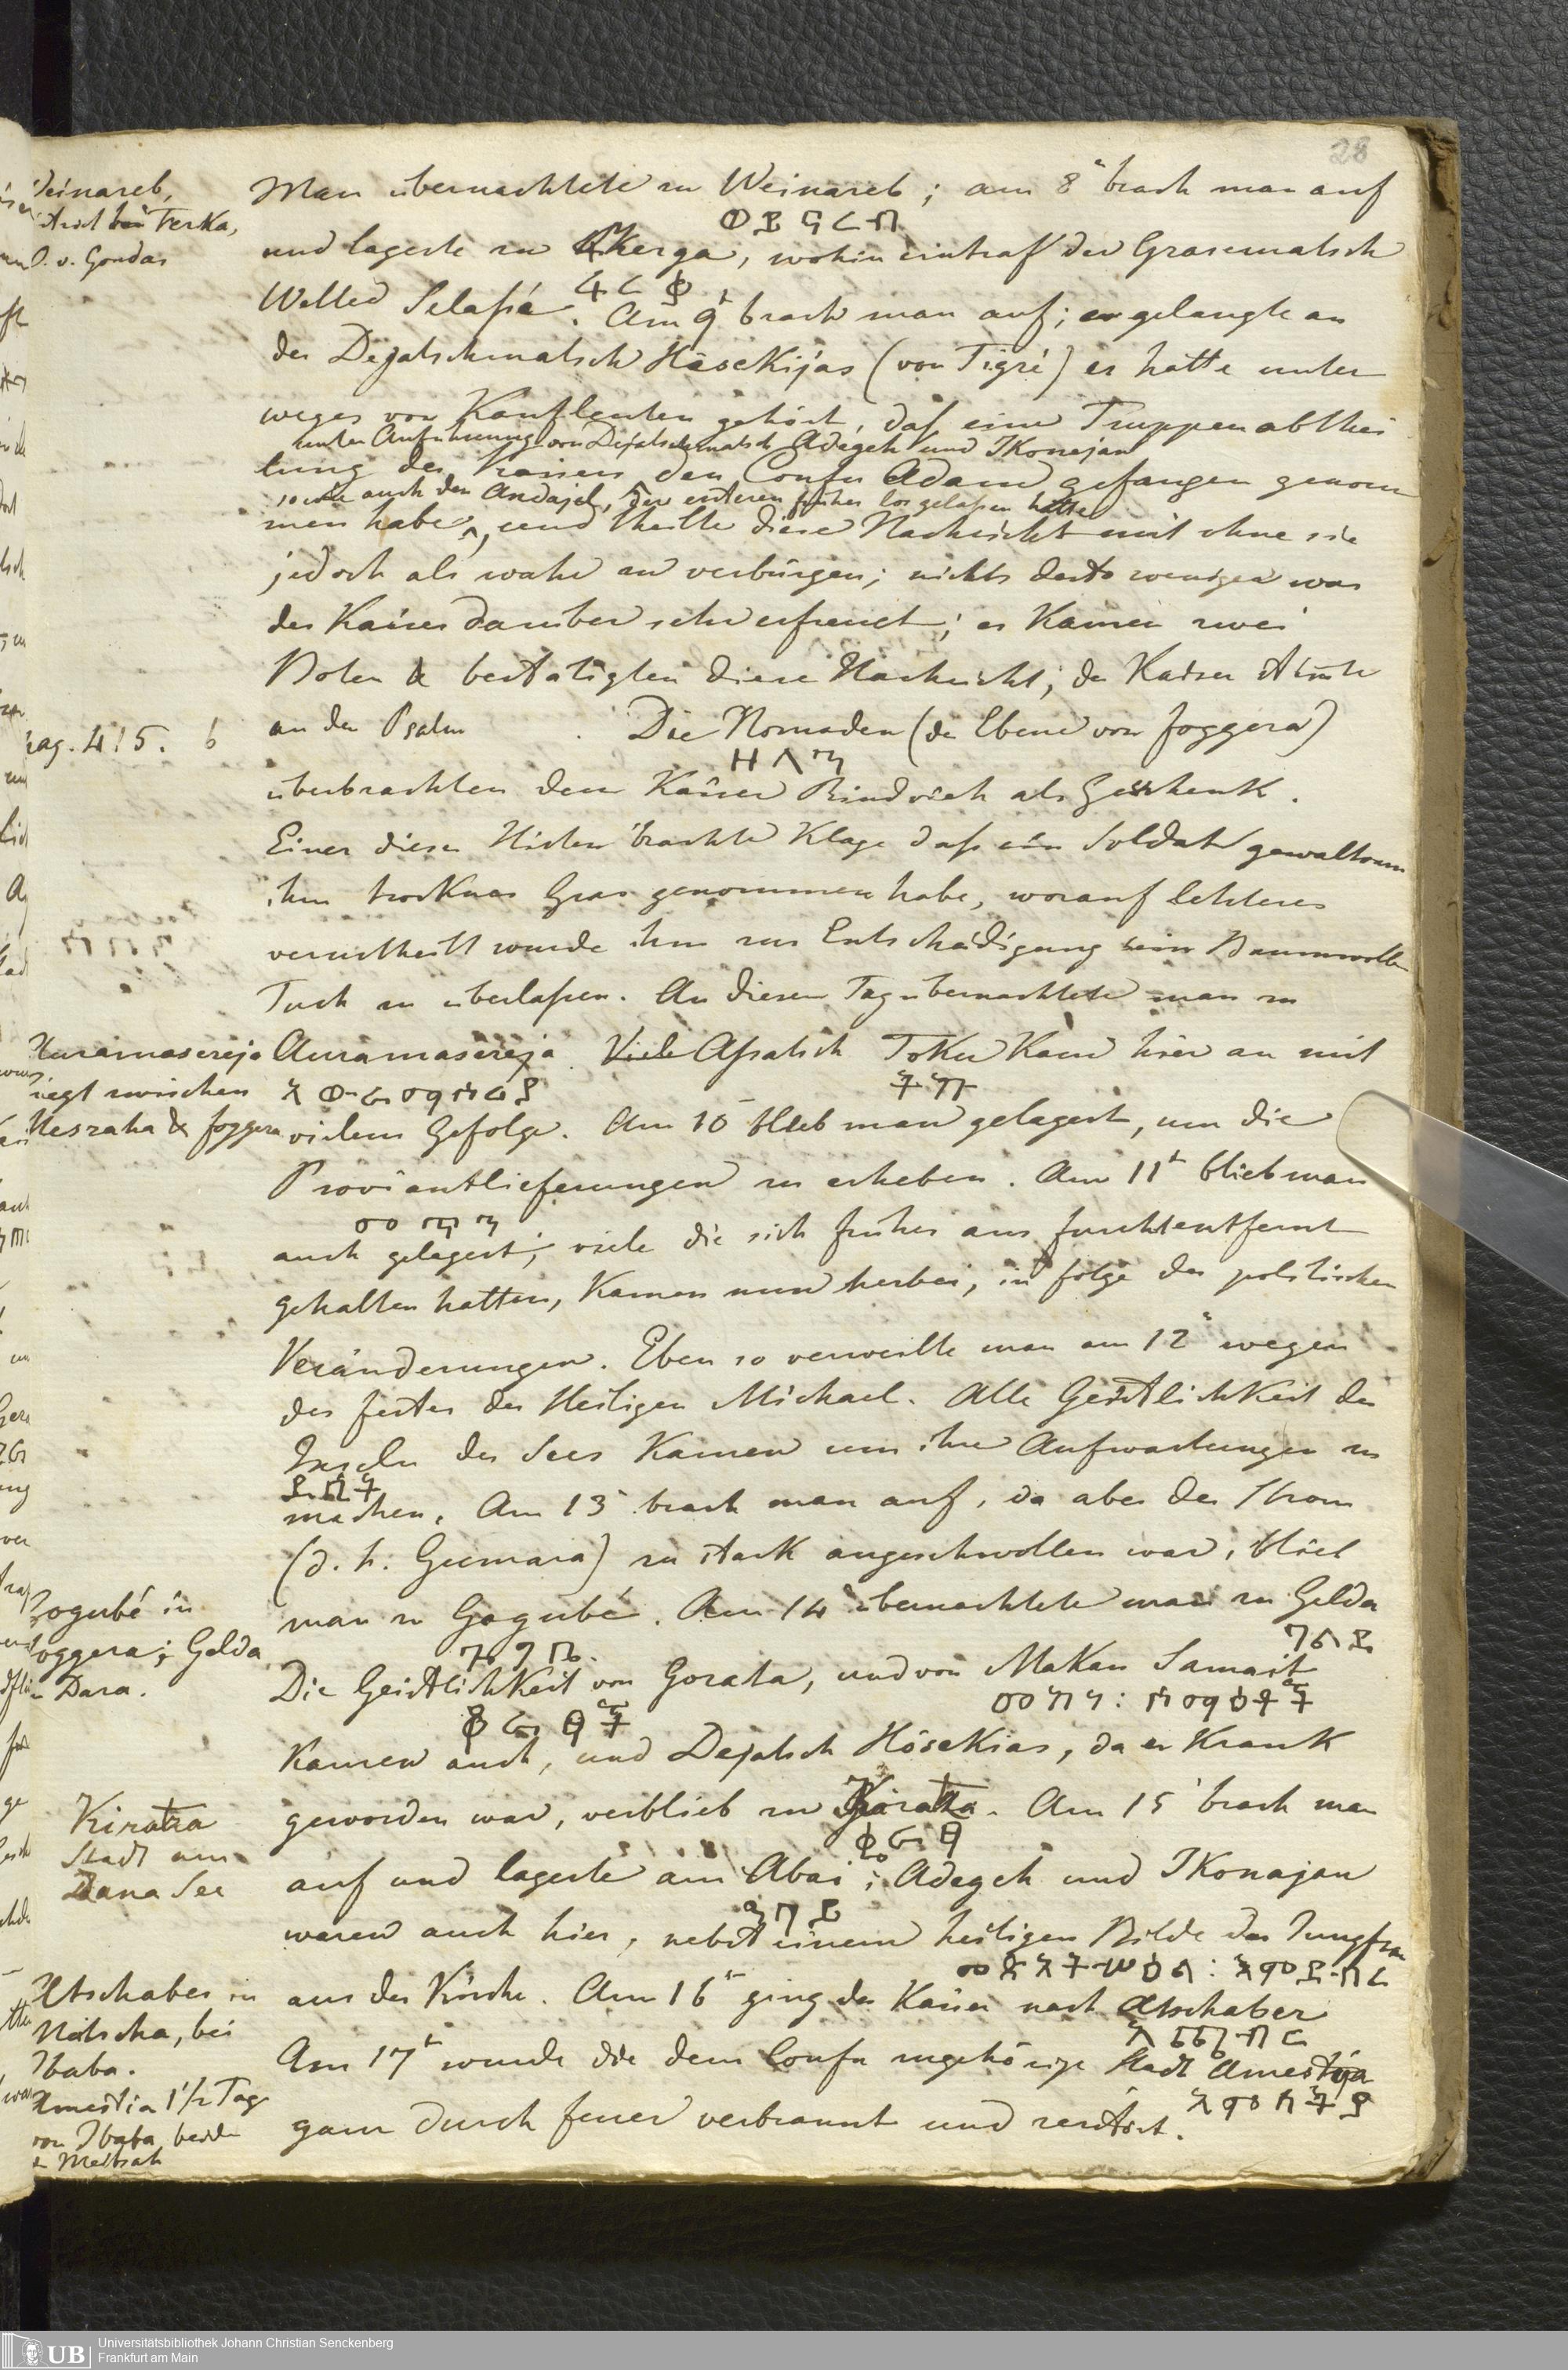 28
Weinareb,
nördl bei Ferka,
O. v. Gondar
Man übernachtete zu Weinareb; am 8t brach man auf
ወይናረብ
und lagerte zu Kherga, wohin eintraf der Grasematsch
Welled Selafié. Am 9t brach man auf; es gelangte an
der Dejatschmatsch Häsekijas (von Tigré) er hatte unter
weges von Kaufleuten gehört, daß eine Truppenabthei
unter Anführung von Dejatschmatsch Adegeh und IKonejan
lung des Kaisers den Confu Adam gefangen genom
so wie auch den Andajel, der ersteren früher losgelaßen hatte
men habe, und theilte diese Nachricht mit ohne sie
jedoch als wahr zu verbürgen; nichts desto weniger war
der Kaiser darüber sehr erfreut; es kamen zwei
Boten & bestätigten diese Nachricht; der Kaiser stimte
pag. 415. b
an den Psalm . Die Nomaden (der Ebene von Foggera)
ዘላን
überbrachten dem Kaiser Rindvieh als Geschenk.
Einer dieser Hirten brachte Klage daß ein Soldat gewaltsam
ihm trocknes Gras genommen habe, worauf letzterer
verurtheilt wurde ihm zur Entschädigung sein Baumwollen
Tuch zu überlaßen. An diesem Tag übernachtete man zu
Auramasereja
liegt zwischen
Mesraha & Foggera
Auramasereja. Viele Afsatsch Toku kam hier an mit
አውራማሰርይ
ቶኩ
vielem Gefolge. Am 10 blieb man gelagert, um die
Proviantlieferungen zu erheben. Am 11t blieb man
መኳን
auch gelagert; viele die sich früher aus Furcht entfernt
gehalten hatten, kamen nun herbei, in folge der politischen
Veränderungen. Eben so verweilte man am 12t wegen
des festes des Heiligen Michael. Alle Geistlichkeit der
Inseln des Sees kamen um ihre Aufwartungen zu
ደሴት
machen. Am 13 brach man auf, da aber der Strom
(d. h. Gumara) zu stark angeschwollen war, blieb
Gogubé in
Foggera; Gelda
in Dara.
man zu Gogubé. Am 14 übernachtete man zu Gelda
ጎጉቤ
ገልዳ
Die Geistlichkeit von Gorata, und von Makan Samait
ቆራጣ
መካነ፡ ሰማዕት
kamen auch, und Dejatsch Hösekias, da er krank
Kiratza
Stadt am
Dana See
geworden war, verblieb zu Kiratza. Am 15t brach man
ቂራፃ
auf und lagerte am Abai; Adegeh und IKonajan
ዓባይ
waren auch hier, nebst einem heiligen Bilde der Jungfrau
aus der Kirche. Am 16t ging der Kaiser nach Atschaber
አጫብር
Atschaber in
Matscha, bei
Ibaba.
Am 17t wurde die dem Confu zugehörige Stadt Amestija
አመስትያ
Amestia 1½ Tag
von Ibaba, beide
in Meitsah
ganz durch feuer verbrannt und zerstört.
UB Universitätsbibliothek Johann Christian Senckenberg
Frankfurt am Main